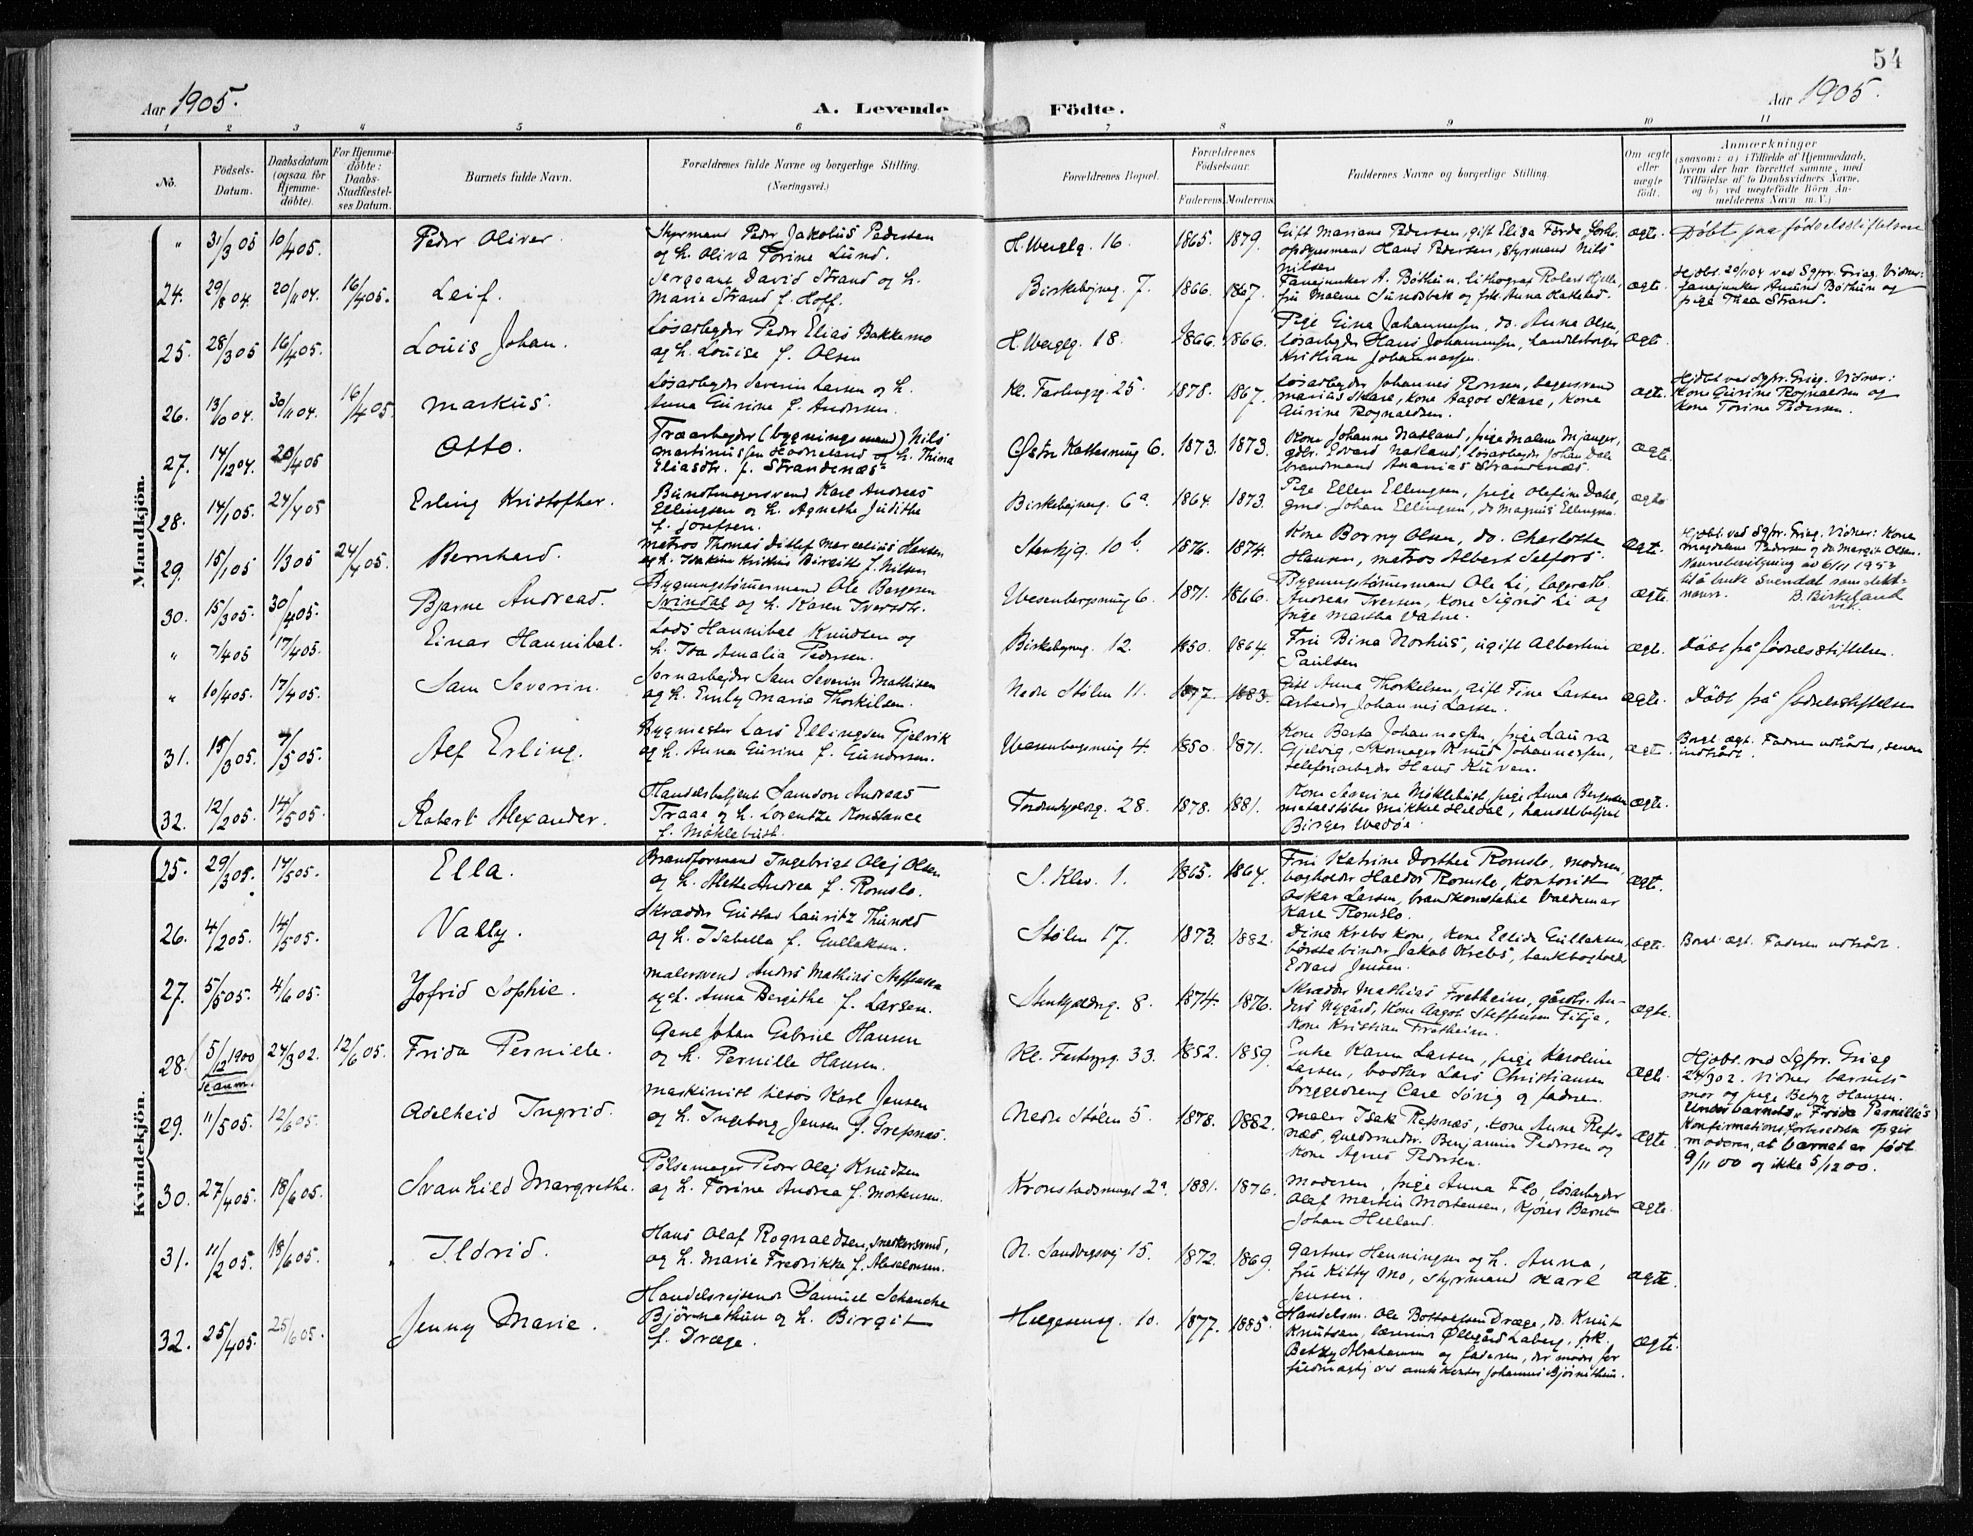 54
Aar 1905.
A. Levende
Födte.
Aar 1905.
1 2 3 4 5 6 7 8 9 10 11
No.
Födsels-Datum.
Daabsdatum (ogsaa for Hjemme-döbte).
For Hjemme-döbte: Daabs-Stadfæstel-ses Datum.
Barnets fulde Navn.
Forældrenes fulde Navne og borgerlige Stilling.
(Næringsvei.)
Forældrenes Bopæl.
Forældrenes Födselsaar.
Faderens. Moderens.
Faddernes Navne og borgerlige Stilling.
Om ægte eller uægte födt.
Anmærkninger
(saasom: a) i Tilfælde af Hjemmedaab,
hvem der har forrettet samme, med
Tilföielse af to Daabsvidners Navne,
og b) ved uægtefödte Börn An-
melderens Navn m. V.)
Mandkjön.
" 31/3 05 10/4 05. Peder Oliver. Styrmand Peder Jakobus Pedersen
og h. Oliva Torine Lund.
H. Wergelg. 16. 1865. 1879. Gift Mariane Pedersen, gift Elisa Förde,
Hans Pedersen, styrmand Nils
Nilsen
ægte. Döbt paa födselsstiftelsen
24. 29/8 04. 20/11 04. 16/4 05. Leif. Sergeant David Strand og h.
Marie Strand f. Hoff.
Birkebeinerg. 7. 1866. 1867. Fanejunker A. Böthun, lithograf Robert Hjelle,
fru Malene Sundsbak og frk. Anna Hatlestad.
ægte. Hjdbt. 20/11 04 ved Sgpr. Grieg. Vidner:
fanejunker Amund Böthun og
pige Thea Strand.
25. 28/3 05 16/4 05. Louis Johan. Lösarbeyder Peder Elias Bakkemo
og h. Louise f. Olsen
H. Wergelg. 18. 1866. 1866. Pige Gina Johannessen, do. Anna Olsen,
lösarbeyder Hans Johannessen,
Kristian Johannessen.
ægte
26. 13/10 04. 30/11 04. 16/4 05. Markus. Lösarbeyder Severin Larsen og h.
Anna Gurine f. Andersen.
Kl. Farlingsg. 25. 1878. 1867. Lösarbeyder Johannes Rossen, bagersvend
Marius Skare, kone Aagot Skare, kone
Gurine Rognaldsen.
ægte. Hjdbt ved Sgpr. Grieg. Vidner:
Kone Gurine Rognaldsen og
Kone Torine Pedersen.
27. 14/12 04. 20/4 05 Otto. Træarbeyder (bygningsmand) Nils
Martinussen Hadneland og h. Thina
Eliasdtr. f. Strandenæs
6. 1873. 1873. Kone Johanne Natland, pige Malene Mjanger,
gdbr. Edvard Natland, lösarbeyder Johan Dale
brandmand Ananias Strandenæs.
ægte.
28. 14/1 05. 24/4 05 Erling Kristoffer. Buntmagersvend Karl Andreas
Ellingsen og h. Agnethe Judithe
f. Josefsen.
Birkebeinerg. 6a 1864. 1873. Pige Ellen Ellingsen, pige Olefine Dahl,
Johan Ellingsen, do Magnus Ellingsen.
ægte
29. 15/1 05. 1/3 05 24/4 05. Bernhard. Matros Thomas Ditlef Marcelius Hansen
og h. Joakine Kristine Birgitte f. Nilsen
Stenkjg. 10 b. 1876. 1874. Kone Borny Olsen, do. Charlotte
Hansen, matros Albert Selfors.
ægte. Hjdbt. ved Sgpr. Grieg. Vidner: Kone
Magdalene Pedersen og do Margit Olsen.
30. 15/3 05. 30/4 05. Bjarne Andreas. Bygningstömmermand Ole Bergesen
Svindal og h. Karen Iversdtr.
Wesenbergsmug 6. 1871. 1866. Bygningstömmermand Ole Li,
Andreas Iversen, kone Sigrid Li og
pige Martha Vatne.
ægte. Navnebevilgning av 6/11 1953
til å bruke Svendal som slekts-
navn. B. Birkeland
vik.
" 7/4 05 17/4 05. Einar Hannibal. Lods Hannibal Knudsen og
h. Ida Amalia Pedersen.
Birkebeinerg. 12. 1850. 1864. Fru Bina Norhus, ugift Albertine
Paulsen
ægte. Döbt på födselsstiftelsen.
" 10/4 05. 17/4 05. Sam Severin. Jernarbejder Sam Severin Mathisen
og h. Emly Marie Thorkilsen.
Nedre Stölen 11. 1877. 1883. Gift Anna Thorkelsen, gift Fine Larsen
Arbeider Johannes Larsen.
ægte. Döbt på födselsstiftelsen
31. 15/3 05. 7/5 05. Alf Erling. Bygmester Lars Ellingsen Gjelvik
og h. Anna Gurine f. Gundersen.
Wesenbergsmug 4. 1850. 1871. Kone Berta Johannessen, pige Laura
Gjelvig, Skomager Knud Johannessen,
telefonarbeyder Hans Kurven.
ægte. Borgl. ægt. Faderen udtraadt, senere
indtraadt.
32. 12/2 05. 14/5 05. Robert Alexander. Handelsbetjent Samson Andreas
Traae og h. Lorentze Konstance
f. Möklebust.
Tordenskjoldsg. 28. 1878. 1881. Kone Severine Möklebust, pige Anna Bergesen
metalstöber Mikkel Hildal, handelsbetjent
Birger Wedöe.
ægte.
Kvindekjön.
25. 29/3 05. 14/5 05. Ella. Brandformand Ingebrigt Olaj Olsen
og h. Alette Andrea f. Romslo.
S. Klev. 1. 1865. 1867. Fru Katrine Dorthea Romslo, moderen,
bogholder Haldor Romslo, kontorist
Oskar Larsen, brandkonstabel Valdemar
Karl Romslo.
ægte.
26. 4/2 05. 14/5 05. Vally. Skrædder Gustav Lauritz Thunold
og h. Isabella f. Gullaksen.
Stölen 17. 1873. 1882. Dina Krebs kone, kone Ellida Gullaksen,
börstebinder Jakob Krebs, bankbogholder
Edvard Jensen.
ægte. Borgl. ægt. Faderen udtraadt.
27. 5/5 05. 4/6 05. Jofrid Sophie. Malersvend Anders Mathias Steffensen
og h. Anna Bergithe f. Larsen.
Stenkjælderg. 8. 1874. 1876. Skrædder Mathias Fretheim, gårdbr. An-
ders Nygård, Kone Aagot Steffensen Titja,
Kone Kristian Fretheim.
ægte.
28. (5/12 1900) 24/3 02. 12/6 05. Frida Pernille. Johan Gabriel Hansen
og h. Pernille Hansen.
Kl. Festerg. 33. 1852. 1859. Enke Karen Larsen, pige Karoline
Larsen, bödker Lars Christiansen
bryggedreng Carl Söng og faderen.
ægte. Hjdbt. ved Sgpr. Grieg
24/3 02. Vidner barnets
mor og pige Betzy Hansen.
Under barnets, Frida Pernille's
Konfirmationsforberedelse opgir
moderen, at barnet er födt
9/11 00 og ikke 5/12 00.
29. 11/5 05. 12/6 05. Adelheid Ingrid. Maskinist Karl Jensen
og h. Ingeborg Jensen f. Grepnæs.
Nedre Stölen 5. 1878. 1882. Maler Isak Refsnæs, kone Anne Refs-
næs, guldsmedsv. Benjamin Pedersen og
Kone Agnes Pedersen.
ægte.
30. 27/4 05. 18/6 05. Svanhild Margrethe. Pölsemager Peder Olaj Knudsen
og h. Torine Andrea f. Mortensen.
Kronstadsmuget 2a. 1881. 1876. Moderen, pige Anna Flo, lösarbeyder
Olaf Martin Mortensen, Kjörer Bernt
Johan Helland.
ægte.
31. 11/2 05. 18/6 05. Ildrid. Hans Olaf Rognaldsen, snedkersvend,
og h. Marie Fredrikke f. Absalonsen.
N. Sandvigsvej 15. 1872. 1869. Gartner Henningsen og h. Anna,
fru Kitty Mo, styrmand Karl
Jensen.
ægte.
32. 25/4 05. 25/6 05. Jenny Marie. Handelsrejsende Samuel Schancke
Björnethun og h. Birgit
f. Dræge.
Helgesensg. 10. 1877. 1885. Handelsm. Ole Bottolfsen Dræge, do. Knut
Knutsen, lærerinde Ollegård Laberg, frk.
Betzy Abrahamsen og faderen, der möder for
fuldmægtig ved amtskontor Johannes Björnethun.
ægte.